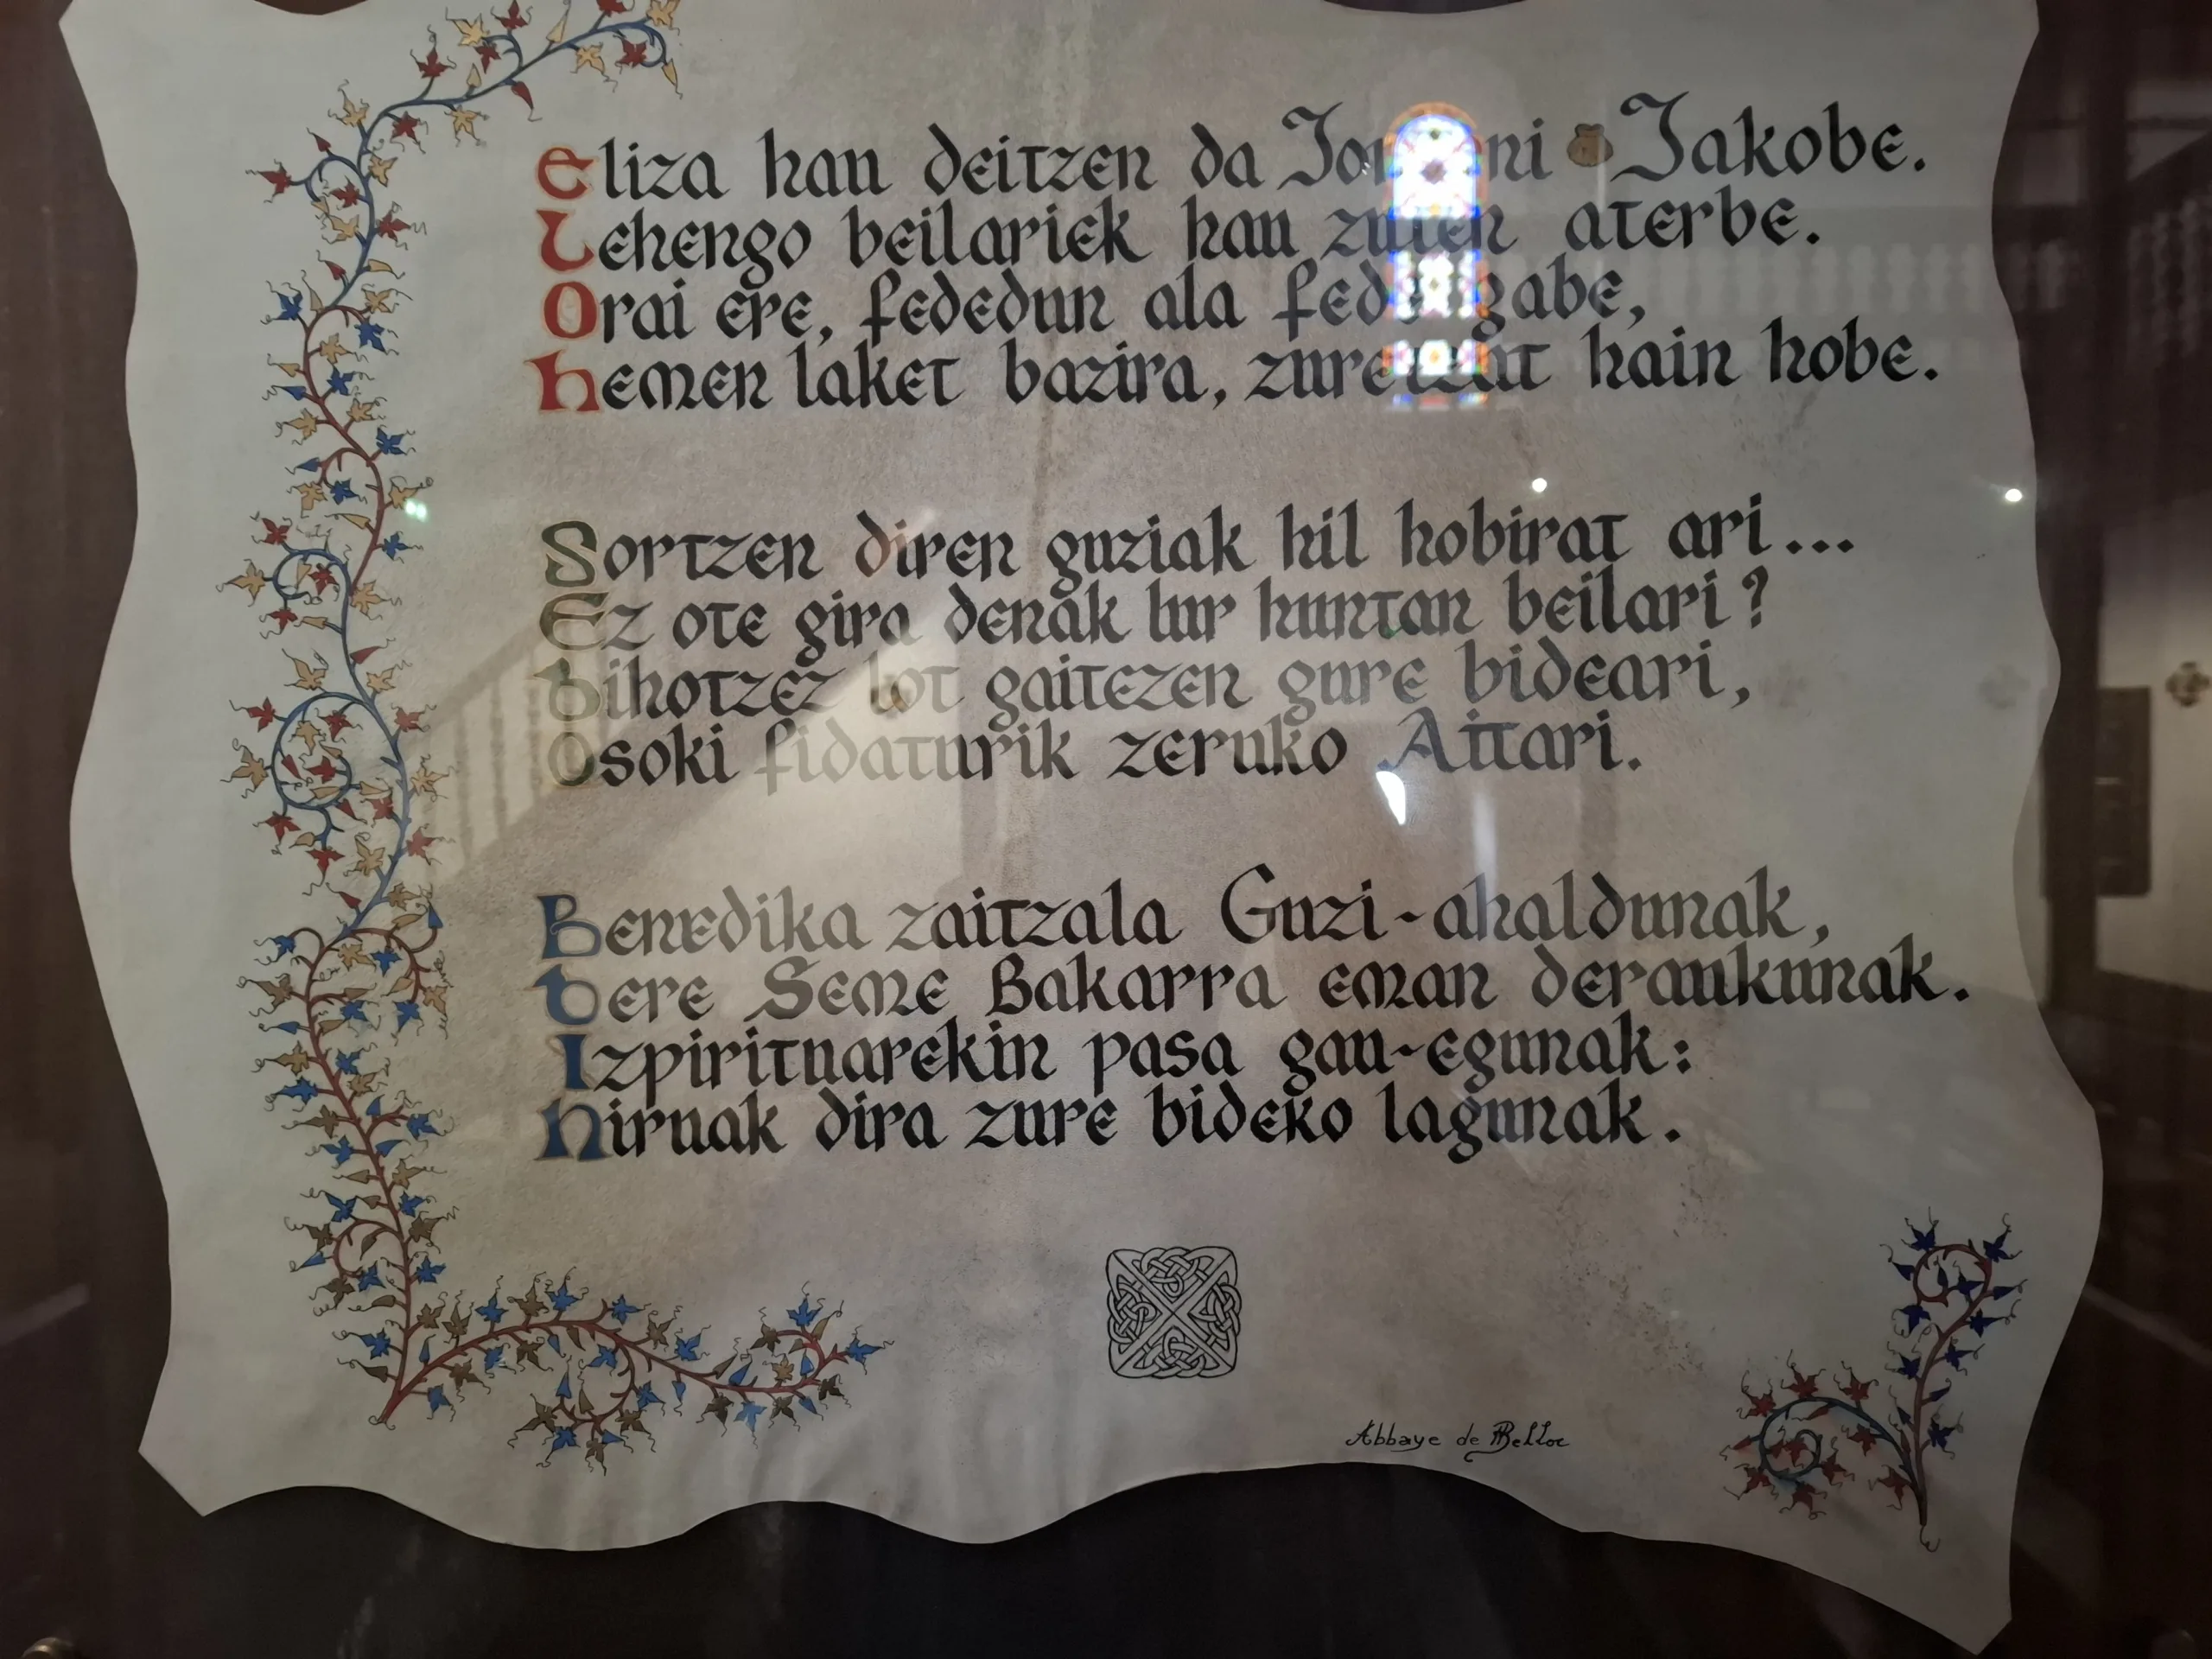 Eliza hau deitzen da Jakobe.
Lehengo beilariek hau zuten aterbe.
Orai ere, fededun ala fede gabe,
Hemen laket bazira, zuretzat hain hobe.
Sortzen diren guziak hil hobirat ari...
Ez ote gira denak lur huntan beilari?
Bihotzez lot gaitezen gure bideari,
Osoki fidaturik zeruko Aitari.
Benedika zaitzala Guzi-ahaldunak,
Bere Seme Bakarra eman deraukunak.
Izpirituarekin pasa gau-egunak:
Hiruak dira zure bideko lagunak.
Abbaye de Belloc